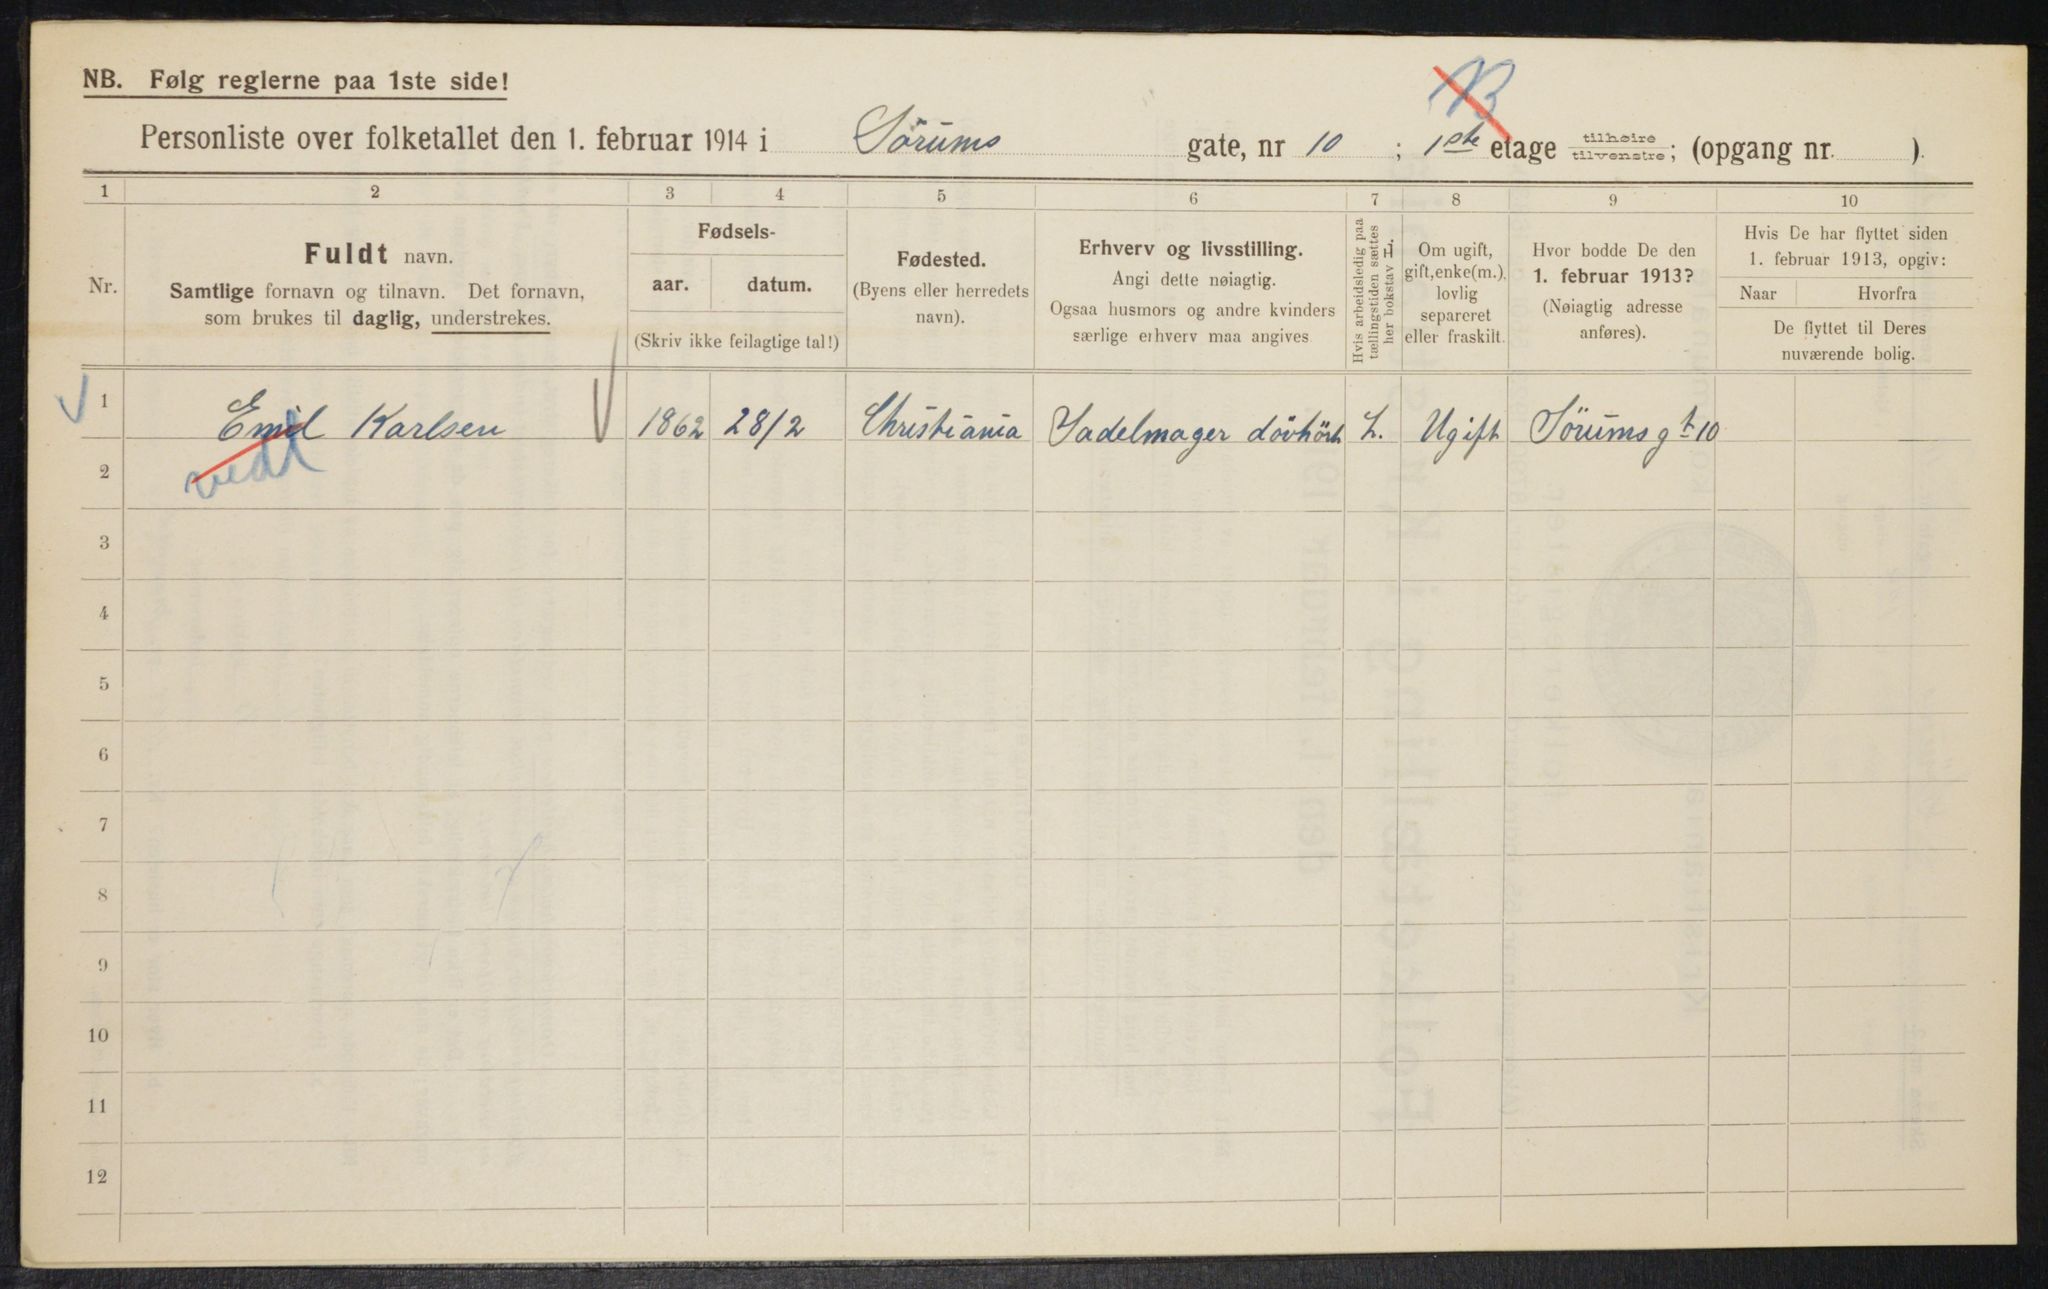 NB. Følg reglerne paa 1ste side!
Personliste over folketallet den 1. februar 1914 i Sörums gate, nr 10 ; 1ste etage tilhøire tilvenstre; (opgang nr. ).
1 2 3 4 5 6 7 8 9 10
Nr.
Fuldt navn.
Samtlige fornavn og tilnavn. Det fornavn,
som brukes til daglig, understrekes.
Fødsels-
aar. datum.
(Skriv ikke feilagtige tal!)
Fødested.
(Byens eller herredets
navn).
Erhverv og livsstilling.
Angi dette nøiagtig.
Ogsaa husmors og andre kvinders
særlige erhverv maa angives
Hvis arbeidsledig paa
tællingstiden sættes
her bokstav L.
Om ugift,
gift, enke(m.),
lovlig
separeret
eller fraskilt.
Hvor bodde De den
1. februar 1913?
(Nøiagtig adresse
anføres).
Hvis De har flyttet siden
1. februar 1913, opgiv:
Naar Hvorfra
De flyttet til Deres
nuværende bolig.
1 Emil Karlsen 1862 28/2 Christiania Sadelmager L. Ugift Sörums gt 10
2
3
4
5
6
7
8
9
10
11
12